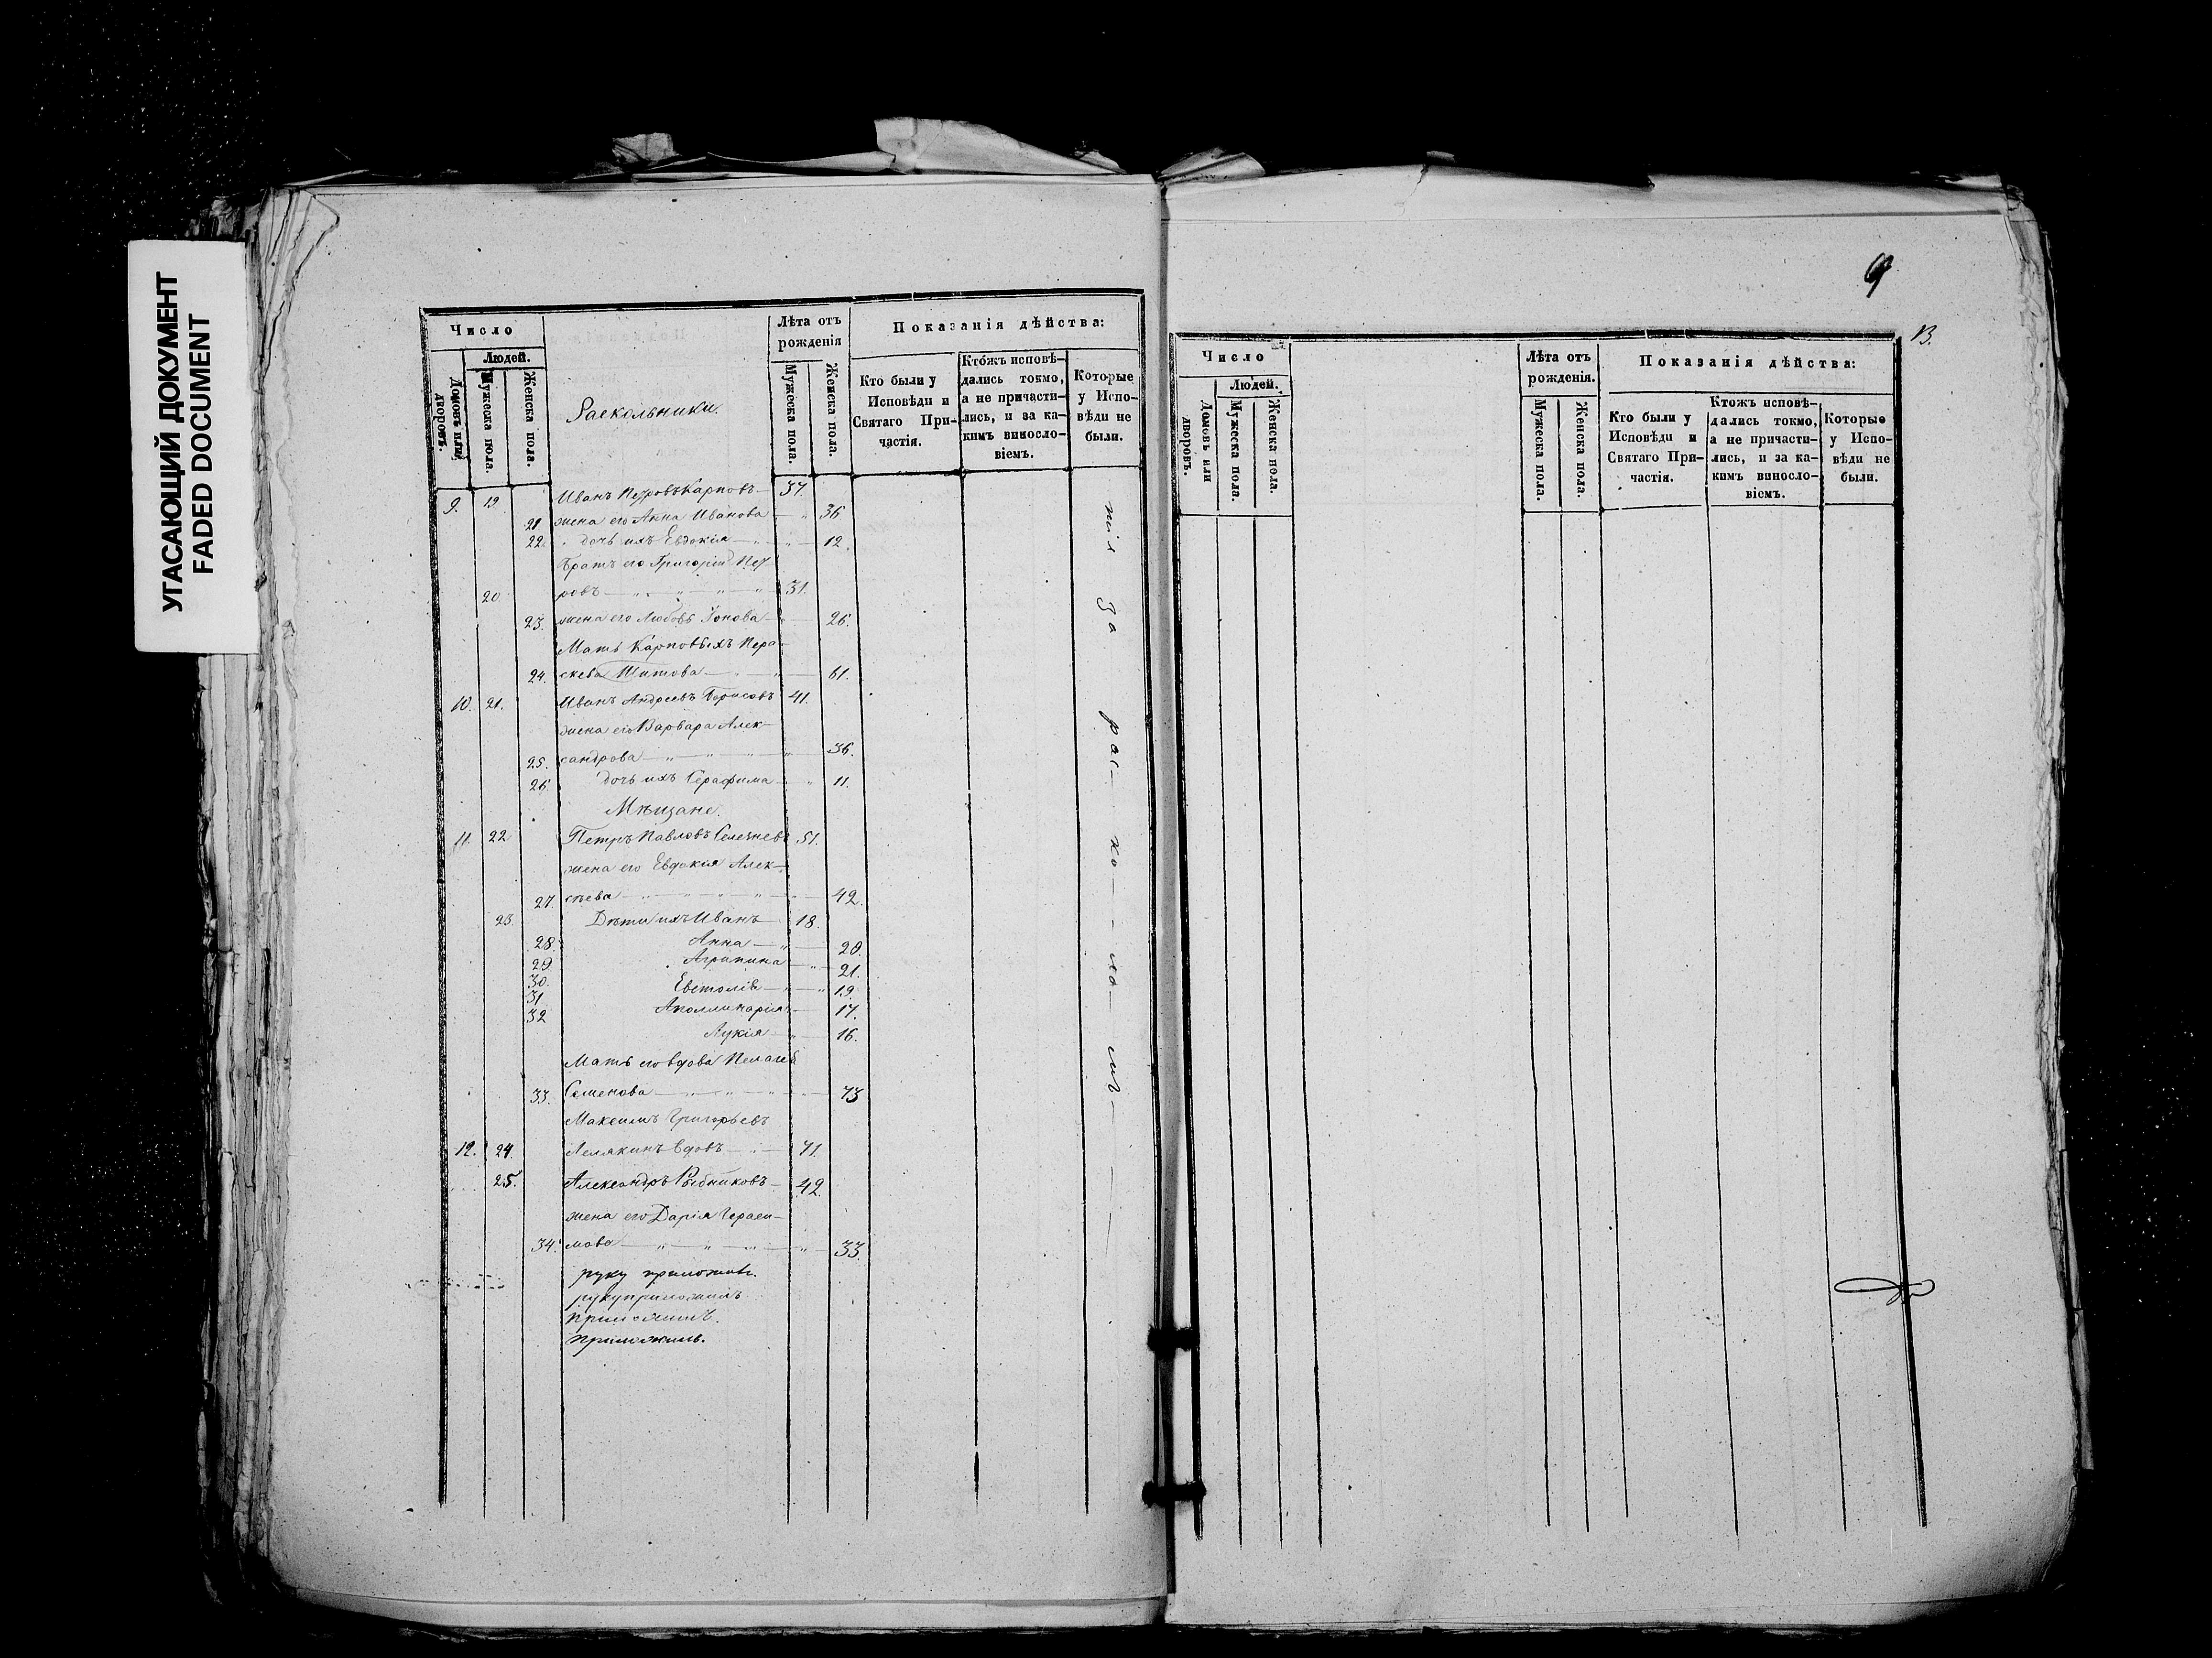 УГАСАЮЩИЙ ДОКУМЕНТ
FADED DOCUMENT
Число
Людей.
Домовъ или дворовъ.
Мужеска пола.
Женска пола.
Раскольники.
Лѣта отъ рожденія
Мужеска пола.
Женска пола.
Показанія дѣйства:
Кто были у Исповѣди и Святаго Причастія.
Ктожъ исповѣдались токмо, а не причастились, и за какимъ винословіемъ.
Которые у Исповѣди не были.
9. 19 Иванъ Петровъ Карповъ 37.
21. жена его Анна Иванова 36
22. дочь ихъ Евдокія 12.
Братъ его Григорій Пет
20 ровъ 31.
23. жена его Любовь Іонова 26.
Мать Карповыхъ Пера
24. скева Титова 61.
10. 21. Иванъ Андреевъ Борисовъ 41.
жена его Варвара Алек-
25. сандрова 36.
26 дочь ихъ Серафима 11.
Мѣщане.
11. 22 Петръ Павловъ Селезневъ 51.
жена его Евдокія Алек-
27. сѣева 42.
23. Дѣти ихъ Иванъ 18.
28. Анна 20.
29. Агрипина 21.
30. Евстолія 19.
31 Аполлинарія 17.
32 Лукія 16.
Мать его вдова Пелагея
33. Семенова 73
Максимъ Григорьевъ
12. 24. вдовъ 71.
25. Александръ Рыбниковъ 42.
жена его Дарія Гераси-
34. мова 33.
руку приложилъ.
руку приложилъ
приложилъ.
приложилъ.
нія за рас- ко- ло- мъ
9
13.
Число
Людей.
Домовъ или дворовъ.
Мужеска пола.
Женска пола.
Лѣта отъ рожденія.
Мужеска пола.
Женска пола.
Показанія дѣйства:
Кто были у Исповѣди и Святаго Причастія.
Ктожъ исповѣдались токмо, а не причастились, и за какимъ винословіемъ.
Которые у Исповѣди не были.